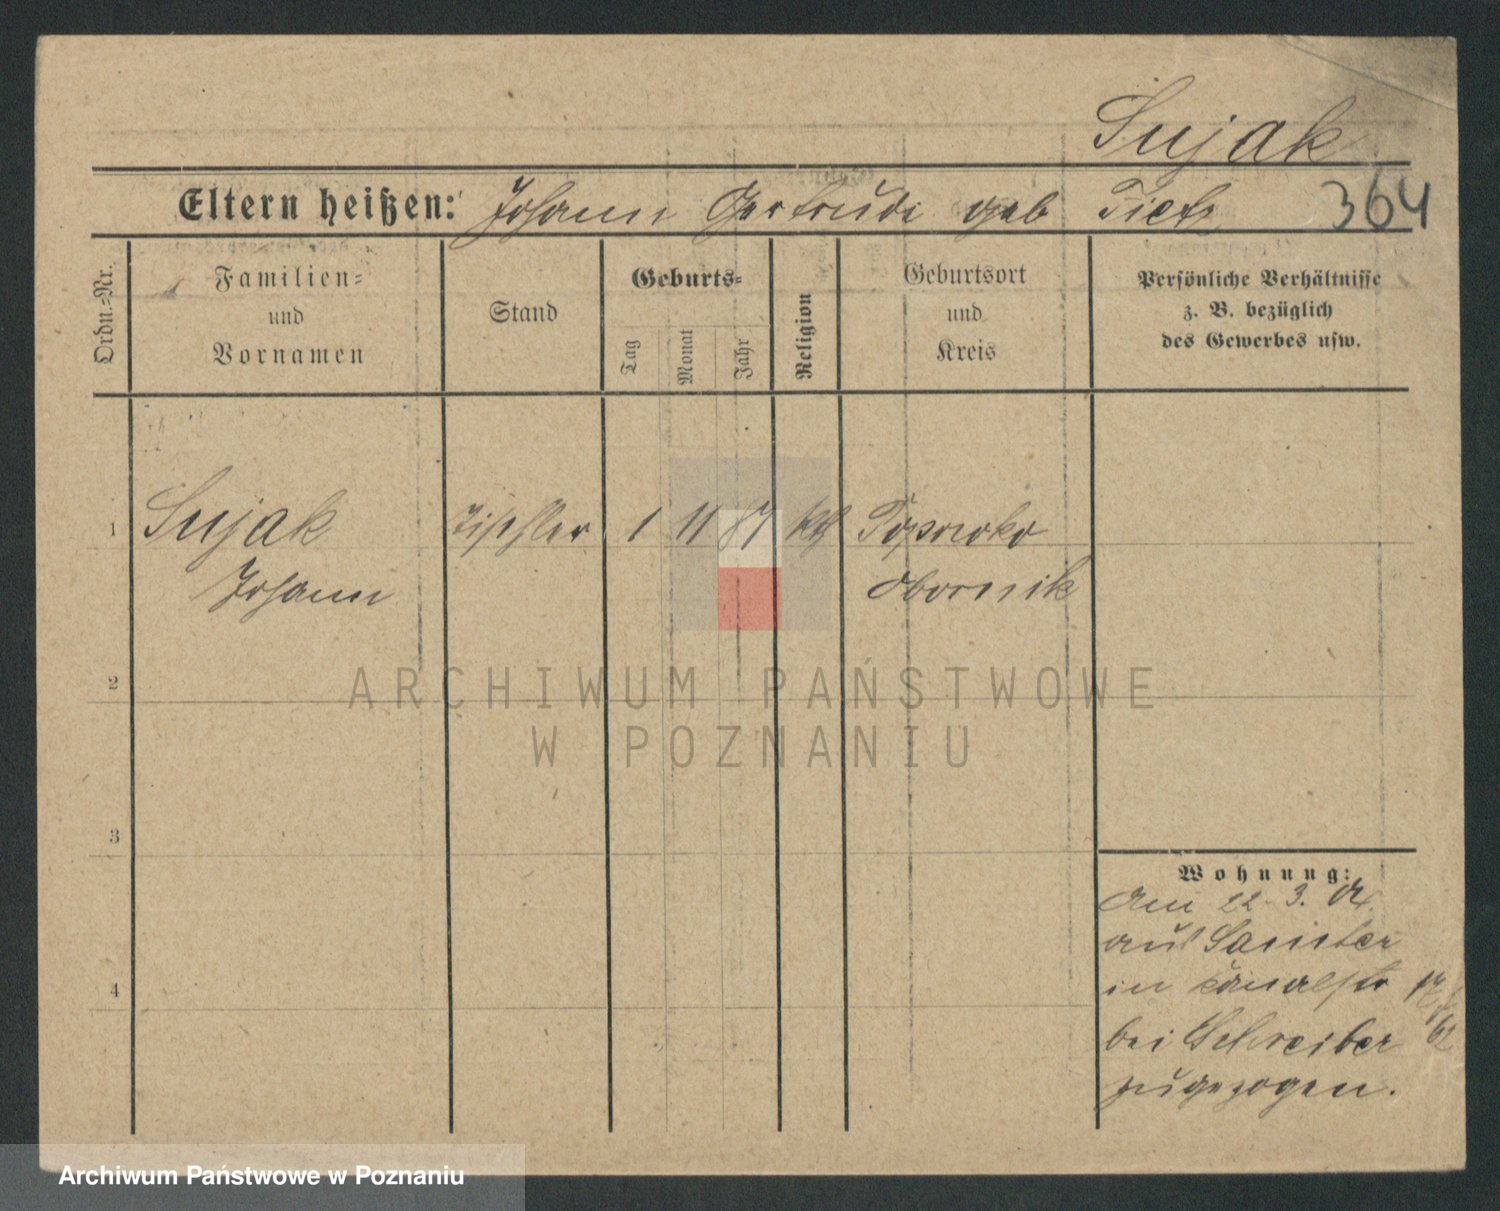 Sujak
Eltern heißen: Johann Gertrude geb Tietz 364
Ordn.-Nr.
Familien-
und
Vornamen
Stand
Geburts-
Tag
Monat
Jahr
Religion
Geburtsort
und
Kreis
Persönliche Verhältnisse
z. B. bezüglich
des Gewerbes usw.
1 Sujak Tischler 1 11 87 kth
Johann Obornik
2
ARCHIWUM PAŃSTWOWE
W POZNANIU
3
4
Wohnung:
Am 22. 3.
aus Samter
in Kanalstr
bei Schreiber
zugezogen.
Archiwum Państwowe w Poznaniu